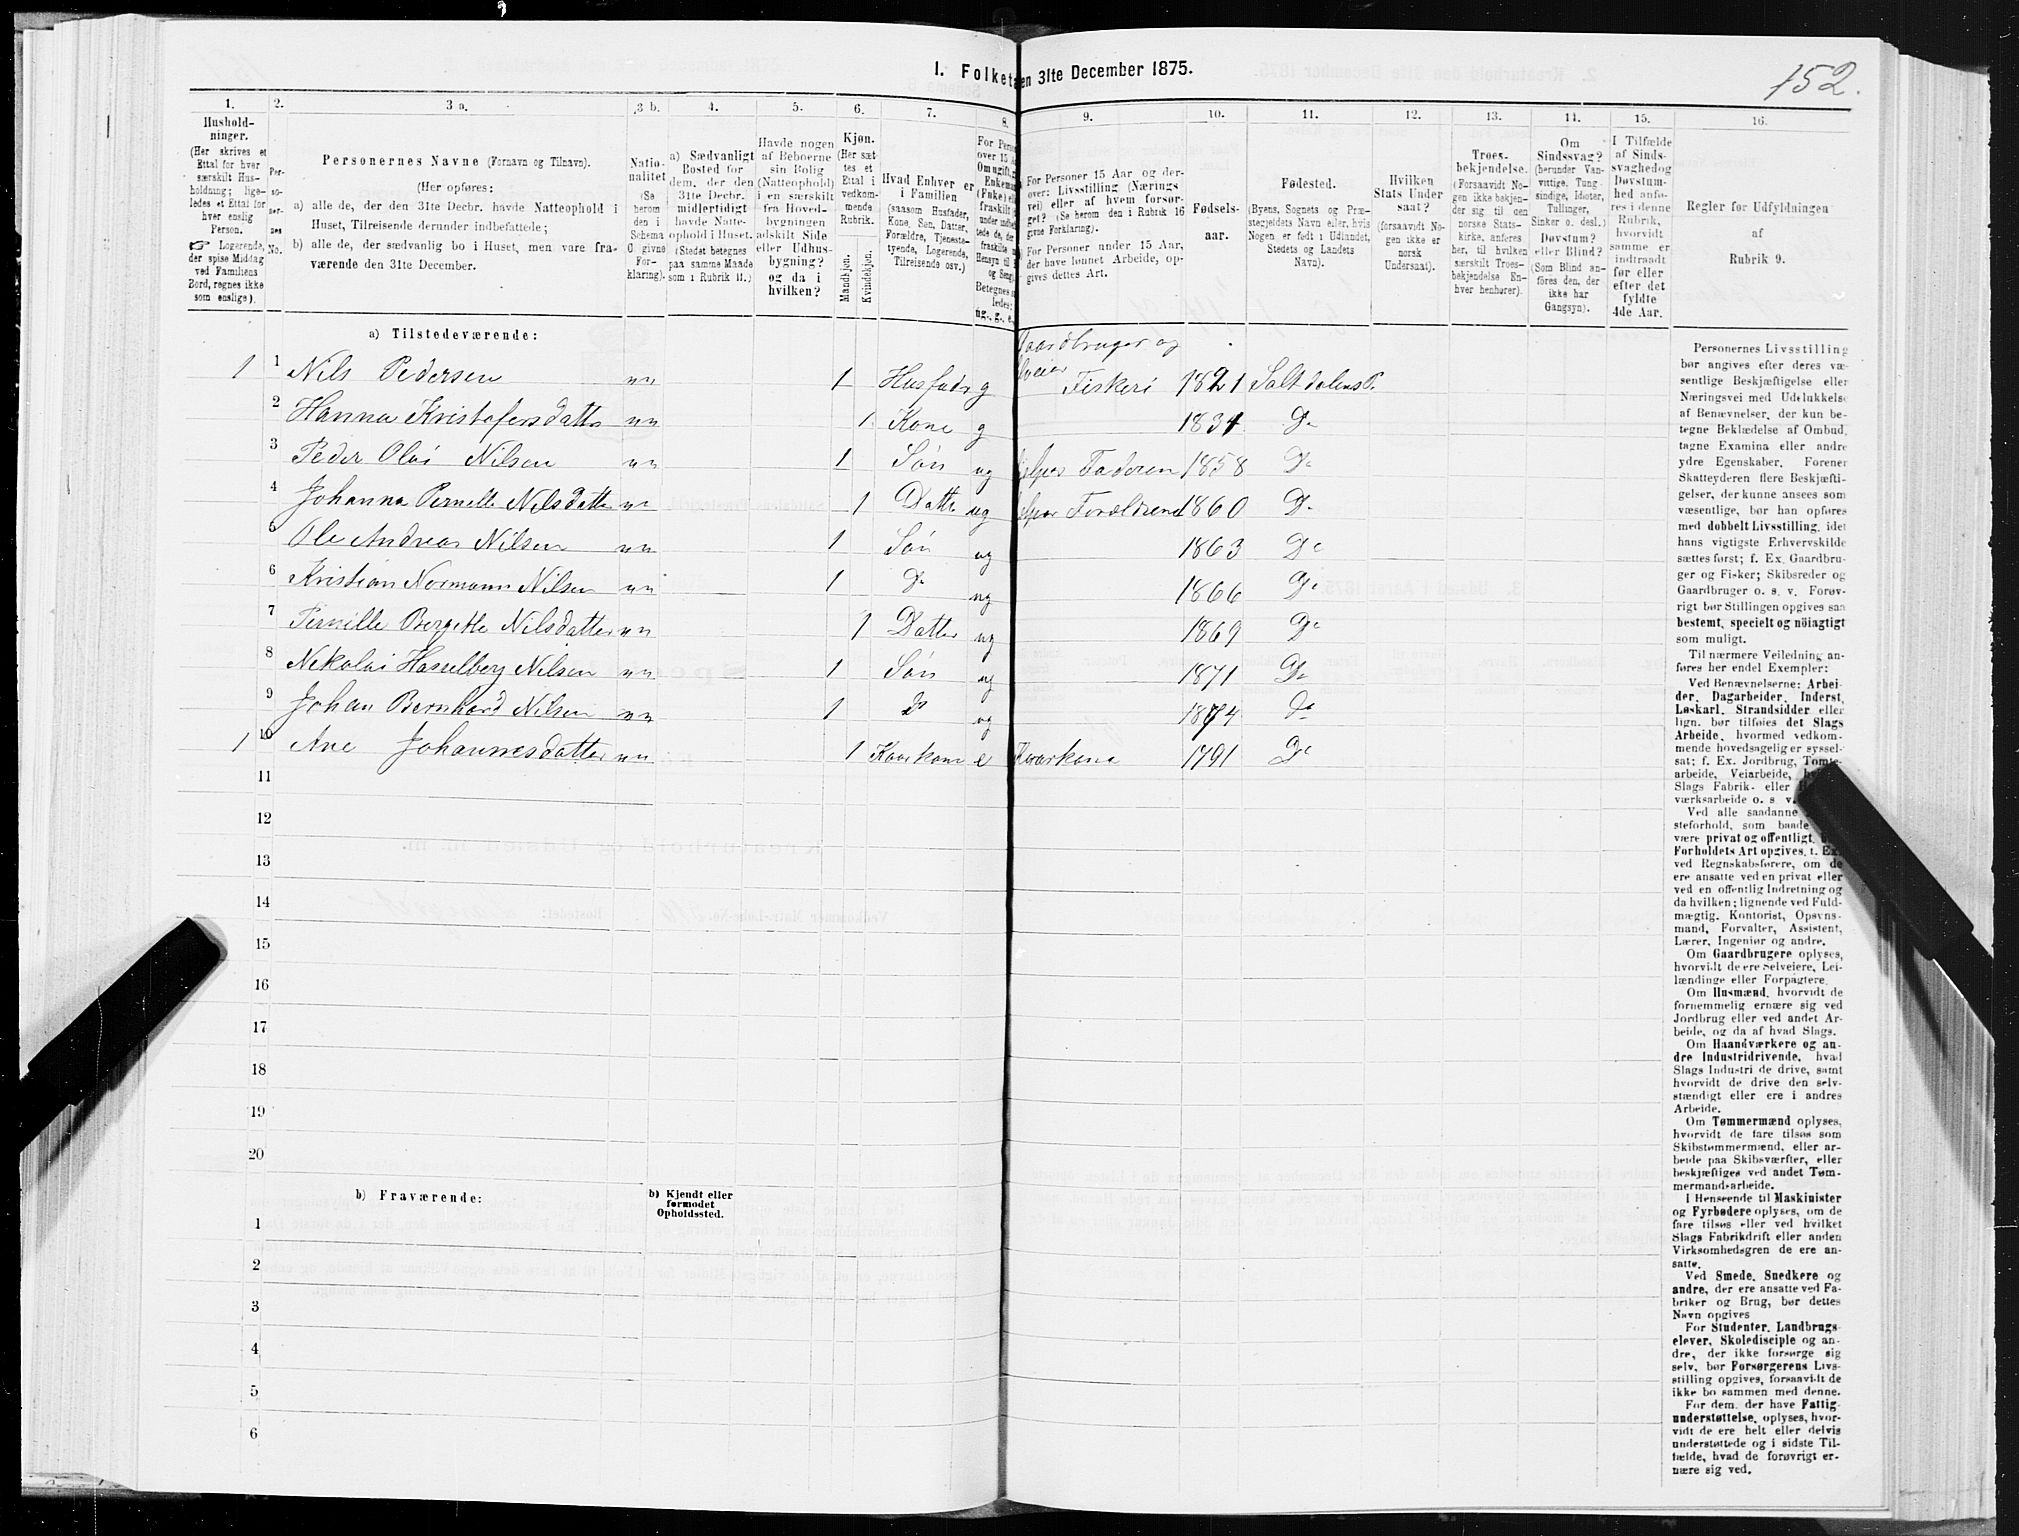 1. Folketæ en 31te December 1875.
152.
1.
2.
3 a.
3 b.
4.
5.
6.
7.
8.
9.
10.
11.
12.
13.
14.
15.
16.
Hushold-
ninger.
(Her skrives et
Ettal for hver
særskilt Hus-
holdning; lige-
ledes et Ettal for
hver enslig
Person.
☞ Logerende,
der spise Middag
ved Familiens
Bord, regnes ikke
som enslige).
Per-
so-
ner-
nes
No.
Personernes Navne (Fornavn og Tilnavn).
(Her opføres:
a) alle de, der den 31te Decbr. havde Natteophold i
Huset, Tilreisende derunder indbefattede;
b) alle de, der sædvanlig bo i Huset, men vare fra-
værende den 31te December.
Natio-
nalitet
(Se
herom
den i
Schema
O givne
For-
klaring).
a) Sædvanligt
Bosted for
dem, der den
31te Decbr.
midlertidigt
havde Natte-
ophold i Huset.
(Stedet betegnes
paa samme Maade
som i Rubrik 11.)
Havde nogen
af Beboerne
sin Bolig
(Natteophold)
i en særskilt
fra Hoved-
bygningen
adskilt Side
eller Udhus-
bygning?
og da i
hvilken?
Kjøn.
(Her sæt
tes et
Ettal i
vedkom-
mende
Rubrik.
Mandkjøn.
Kvindekjøn.
Hvad Enhver er
i Familien
(saasom Husfader,
Kone, Søn, Datter,
Forældre, Tjeneste-
tyende, Logerende,
Tilreisende osv.)
For Perso
over 15 A
Om ugift, g
Enkema
(Enke) el
fraskilt
For Personer 15 Aar og der-
over: Livsstilling (Nærings
vei) eller af hvem forsør-
get? (Se herom den i Rubrik 16
givne Forklaring).
For Personer under 15 Aar,
der have lønnet Arbeide, op-
gives dettes Art.
Fødsels-
aar.
Fødested.
(Byens, Sognets og Præ-
stegjeldets Navn eller, hvis
Nogen er født i Udlandet,
Stedets og Landets
Navn).
Hvilken
Stats Under
saat?
(forsaavidt No-
gen ikke er
norsk
Undersaat).
Troes-
bekjendelse.
(Forsaavidt No-
gen ikke bekjen-
der sig til den
norske Stats-
kirke, anføres
her, til hvilken
særskilt Troes-
bekjendelse En-
hver henhører).
Om
Sindssvag?
(herunder Van-
vittige, Tung-
sindige, Idioter,
Tullinger,
Sinker o. desl.)
Døvstum?
eller Blind?
(Som Blind an-
føres den, der
ikke har
Gangsyn).
I Tilfælde
af Sinds-
svaghed og
Døvstum-
hed anfø-
res i denne
Rubrik,
hvorvidt
samme er
indtraadt
før eller
efter det
fyldte
4de Aar.
Regler for Udfyldningen
af
Rubrik 9.
a) Tilstedeværende:
Gaardbruger og
1 1 Nils Pedersen nn 1 Husfader g Selveier Fiskeri 1821 Saltdalens P.
2 Hanna Kristofersdatter nn 1 Kone g 1834 Do
3 Peder Olai Nilsen nn 1 Søn ug hjelper Faderen 1858 Do
4 Johanna Pernille Nilsdatter nn 1 Datter ug hjelper Forældrene 1860 Do
5 Ole Andreas Nilsen nn 1 Søn ug 1863 Do
6 Kristian Normann Nilsen nn 1 Do ug 1866 Do
7 Pernille Bergitte Nilsdatter nn 1 Datter ug 1869 Do
8 Nikolai Hasselberg Nilsen nn 1 Søn ug 1871 Do
9 Johan Bernhard Nilsen nn 1 Do ug 1874 Do
1 10 Ane Johannesdatter nn 1 Kaarkone e Kaarkone 1791 Do
11
12
13
14
15
16
17
18
19
20
b) Fraværende:
b) Kjendt eller
formodet
Opholdssted.
1
2
3
4
5
6
Personernes Livsstilling
bør angives efter deres væ-
sentlige Beskjæftigelse eller
Næringsvei med Udelukkelse
af Benævnelser, der kun be-
tegne Beklædelse af Ombud,
tagne Examina eller andre
ydre Egenskaber. Forener
Skatteyderen flere Beskjæfti-
gelser, der kunne ansees som
væsentlige, bør han opføres
med dobbelt Livsstilling, idet
hans vigtigste Erhvervskilde
sættes først; f. Ex. Gaardbru-
ger og Fisker; Skibsreder og
Gaardbruger o. s. v. Forøv-
rigt bør Stillingen opgives saa
bestemt, specielt og nöiagtigt
som muligt.
Til nærmere Veiledning an-
føres her endel Exempler:
Ved Benævnelserne: Arbei-
der, Dagarbeider, Inderst,
Løskarl, Strandsidder eller
lign. bør tilføies det Slags
Arbeide, hvormed vedkom-
mende hovedsagelig er syssel-
sat; f. Ex. Jordbrug, Tomte-
arbeide, Veiarbeide,
Slags Fabrik- eller
værksarbeide o. s v.
Ved alle saadanne
steforhold, som baade
være privat og offentligt,
Forholdets Art opgives, t. Ex.
ved Regnskabsførere, om de
ere ansatte ved en privat eller
ved en offentlig Indretning og
da hvilken; lignende ved Fuld-
mægtig, Kontorist, Opsyns-
mand, Forvalter, Assistent,
Lærer, Ingeniør og andre.
Om Gaardbrugere oplyses,
hvorvidt de ere Selveiere, Lei-
lændinge eller Forpagtere.
Om Husmænd, hvorvidt de
fornemmelig ernære sig ved
Jordbrug eller ved andet Ar-
beide, og da af hvad Slags.
Om Haandværkere og an-
dre Industridrivende, hvad
Slags Industri de drive, samt
hvorvidt de drive den selv-
stændigt eller ere i andres
Arbeide.
Om Tømmermænd oplyses,
hvorvidt de fare tilsøs som
Skibstømmermænd, eller ar-
beide paa Skibsværfter, eller
beskjæftiges ved andet Tøm-
mermandsarbeide.
I Henseende til Maskinister
og Fyrbødere oplyses, om de
fare tilsøs eller ved hvilket
Slags Fabrikdrift eller anden
Virksomhedsgren de ere an-
satte.
Ved Smede, Snedkere og
andre, der ere ansatte ved Fa-
briker og Brug, bør dettes
Navn opgives
For Studenter, Landbrugs-
elever, Skoledisciple og an-
dre, der ikke forsørge sig
selv, bør Forsørgerens Livs-
stilling opgives, forsaavidt de
ikke bo sammen med denne.
For dem, der have Fattig-
understøttelse, oplyses, hvor-
vidt de ere helt eller delvis
understøttede og i sidste Til-
fælde, hvad de forøvrigt er-
nære sig ved.